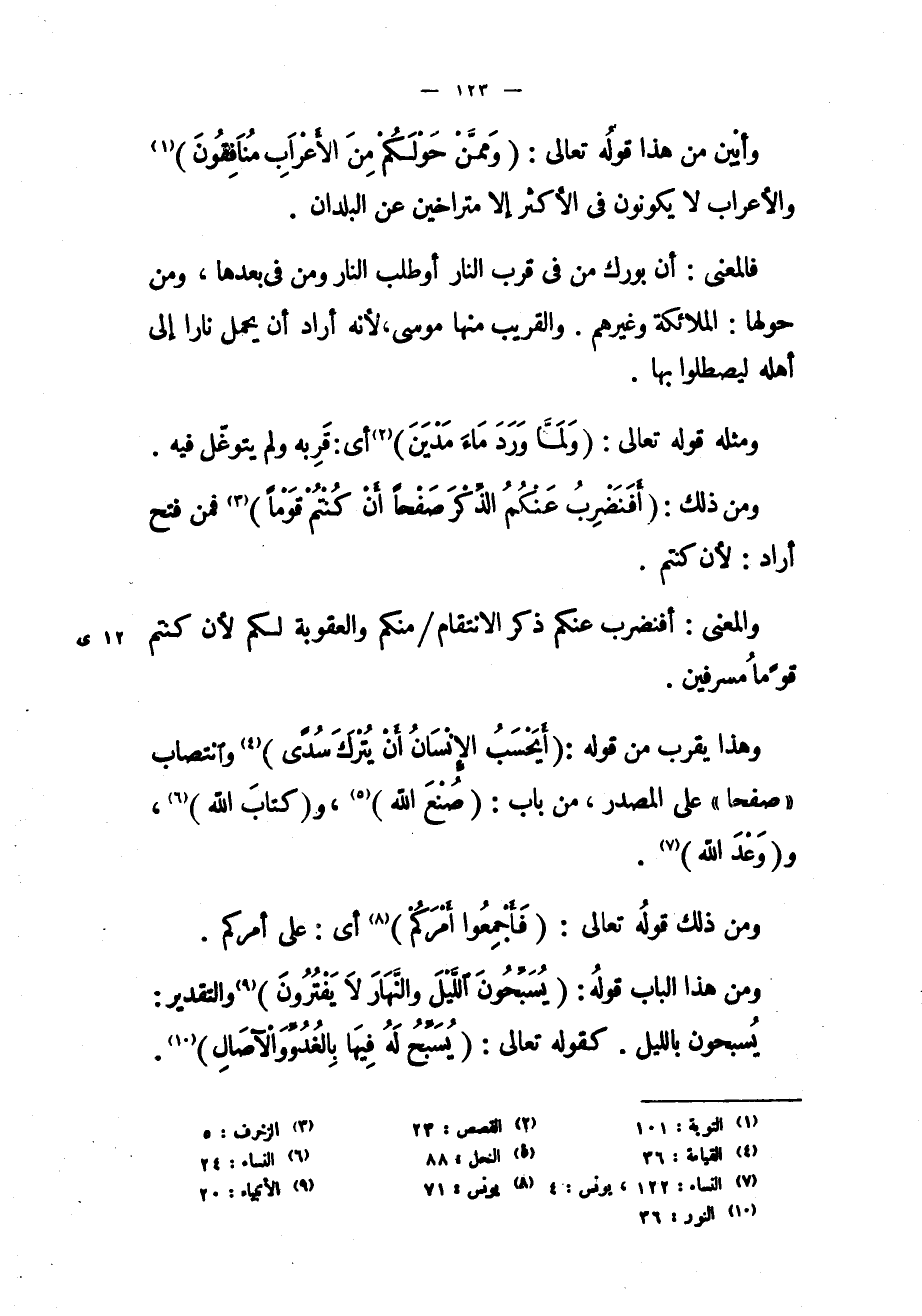 — ١٢٣ —
وأبْين من هذا قولُه تعالى : ( وَمِمَّنْ حَوْلَكُمْ مِنَ الأَعْرَابِ مُنَافِقُونَ )(١)
والأعراب لا يكونون فى الأكثر إلا متراخين عن البلدان .
فالمعنى : أن بورك من فى قرب النار أوطلب النار ومن فى بعدها ، ومن
حولها : الملائكة وغيرهم . والقريب منها موسى ،لأنه أراد أن يحمل نارا إلى
أهله ليصطلوا بها .
ومثله قوله تعالى : ( وَلَمَّا وَرَدَ مَاءَ مَدْيَنَ )(٢) أى : قَرِبه ولم يتوغّل فيه .
ومن ذلك : ( أَفَنَضْرِبُ عَنْكُمُ الذِّكْرَ صَفْحاً أَنْ كُنْتُمْ قَوْماً )(٣) فمن فتح
أراد : لأن كنتم .
والمعنى : أفنضرب عنكم ذكر الانتقام / منكم والعقوبة لكم لأن كنتم ١٢ ى
قومًا مسرفين .
وهذا يقرب من قوله : ( أَيَحْسَبُ الإِنْسَانُ أَنْ يُتْرَكَ سُدًى )(٤) وانتصاب
« صفحا » على المصدر ، من باب : ( صُنْعَ الله )(٥) ، و( كتابَ الله )(٦) ،
و( وَعْدَ الله )(٧) .
ومن ذلك قولُه تعالى : ( فَأَجْمِعُوا أَمْرَكُمْ )(٨) أى : على أمركم .
ومن هذا الباب قولهُ : ( يُسَبِّحُونَ اَللَّيْلَ والنَّهَارَ لاَ يَفْتُرُونَ )(٩) والتقدير :
يُسبحون بالليل . كقوله تعالى : ( يُسَبِّحُ لَهُ فِيهَا بِالغُدُوِّ وَالْآصَالِ )(١٠) .
(١) التوبة : ١٠١ (٢) القصص : ٢٣ (٣) الزخرف : ٥
(٤) القيامة : ٣٦ (٥) النمل : ٨٨ (٦) النساء : ٢٤
(٧) النساء : ١٢٢ ، يونس : ٤ (٨) يونس : ٧١ (٩) الأنبياء : ٢٠
(١٠) النور : ٣٦